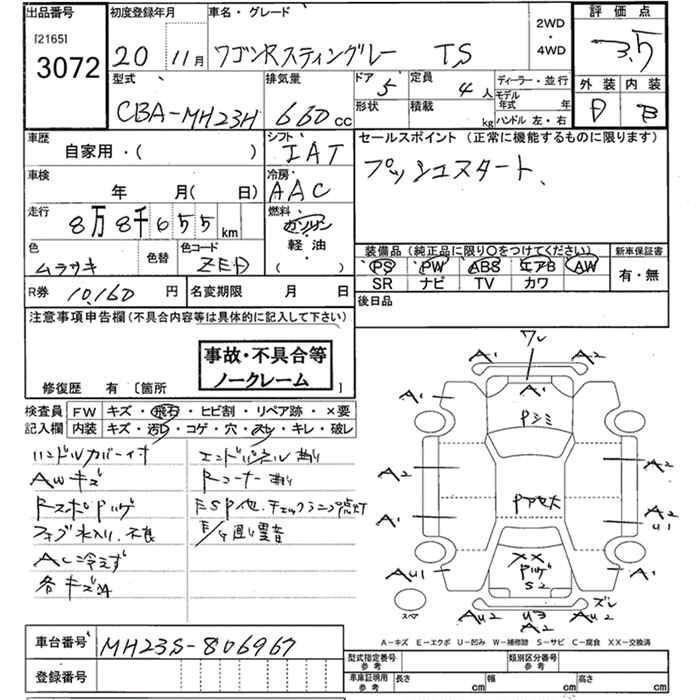 出品番号 初度登録年月 車名・グレード 2WD・4WD 評価点
[2165] 3072 20 11月 ワゴンRスティングレー TS 3.5
型式 排気量 ドア 5 定員 4人 ディーラー・並行 外装 内装
CBA-MH23H 660cc 形状 積載 kg モデル年式 年 D B
ハンドル 左・右
車歴 シフト セールスポイント (正常に機能するものに限ります)
自家用・( ) IAT プッシュスタート、
車検 冷房
年 月( 日) AAC
走行 燃料
8万8千655km ガソリン
軽油
( )
色 色替 色コード 装備品(純正品に限り○をつけてください) 新車保証書
ムラサキ ZED PS PW ABS エアB AW 有・無
SR ナビ TV カワ
R券 10,160円 名変期限 月 日 後日品
注意事項申告欄(不具合内容等は具体的に記入して下さい)
事故・不具合等
ノークレーム
修復歴 有 [箇所
検査員 FW キズ・飛石・ヒビ割・リペア跡・×要
記入欄 内装 キズ・汚レ・コゲ・穴・スレ・キレ・破レ
ハンドルカバー付 エンドパネル曲り
AWキズ Rコーナー曲り
ESP他、チェックランプ点灯
フォグ水入り、不良
AC冷えず
各キズ凹
ワレ
A1 A2
A1 A1
Pシミ
A2 A2
A1 A2
U1
XX
AU1 A1
S2
スペア AU2 U3 AU2 ズレ
A2
A-キズ E-エクボ U-凹み W-補修跡 S-サビ C-腐食 XX-交換済
車台番号 MH23S-806967 型式指定番号 参考 類別区分番号 参考
登録番号 車庫証明用 参考 長さ cm 幅 cm 高さ cm